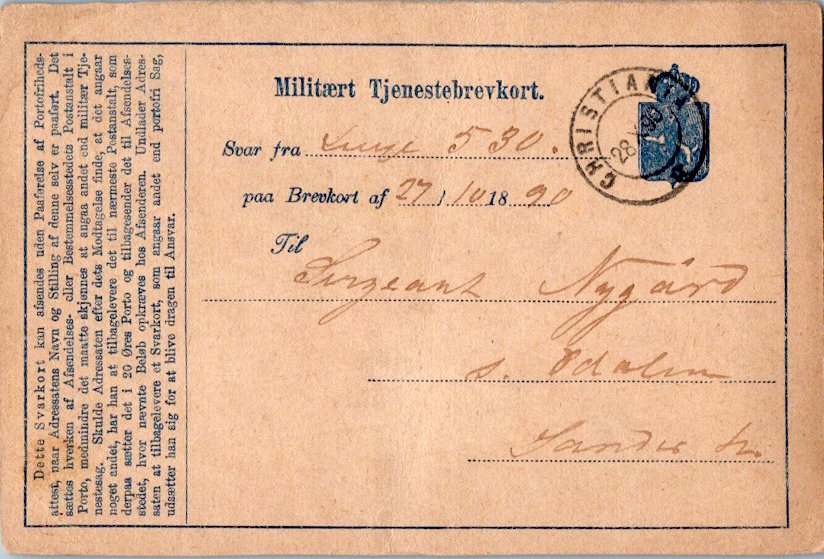 Militært Tjenestebrevkort.
Svar fra 530.
paa Brevkort af 27/10 1890
Til
Sergeant Nygård
s. Odalen
Sander st.
CHRISTIANIA
28 X 90
Dette Svarkort kan afsendes uden Paaførelse af Portofriheds-
attest, naar Adressatens Navn og Stilling af denne selv er paaført. Det
sættes hverken af Afsendelses- eller Bestemmelsesstedets Postanstalt i
Porto, medmindre det maatte skjønnes at angaa andet end militær Tje-
nestesag. Skulde Adressaten efter dets Modtagelse finde, at det angaar
noget andet, bør han at tilbagelevere det til nærmeste Postanstalt, som
derpaa sætter det i 20 Øres Porto og tilbagesender det til Afsendelses-
stedet, hvor nævnte Beløb opkræves hos Afsenderen. Undlader Adres-
saten at tilbagelevere et Svarkort, som angaar andet end portofri Sag,
udsætter han sig for at blive dragen til Ansvar.